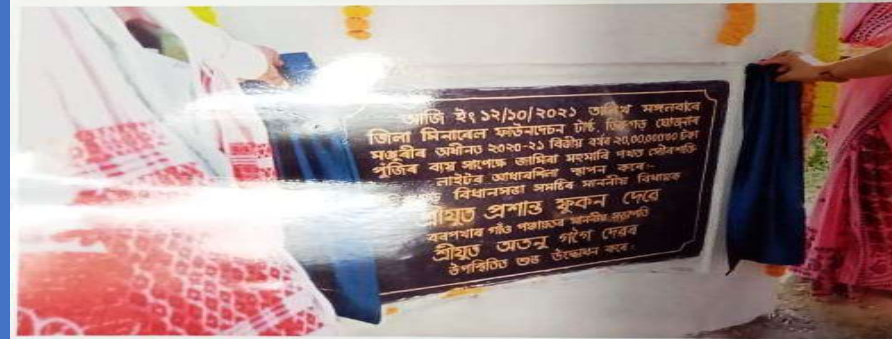 আজি ইং ১২/১০/২০২১ তাৰিখ মঙ্গলবাৰে
জিলা মিনাৰেল ফাউনদেচন ট্ৰাষ্ট, ডিব্ৰুগড় যোজনাৰ
মঞ্জুৰীৰ অধীনত ২০২০-২১ বিত্তীয় বৰ্ষৰ ২০,00,000.00 টকা
পুঁজিৰ ব্যয় সাপেক্ষে জামিৰা মহমাৰি পথত সৌৰশক্তি
লাইটৰ আধাৰশিলা স্থাপন কৰে-
বিধানসভা সমষ্টিৰ মাননীয় বিধায়ক
শ্ৰীযুত প্ৰশান্ত ফুকন দেৱে
বৰপথাৰ গাঁও পঞ্চায়তৰ মাননীয় সভাপতি
শ্ৰীযুত অতনু গগৈ দেৱৰ
উপস্থিতিত শুভ উদ্বোধন কৰে।